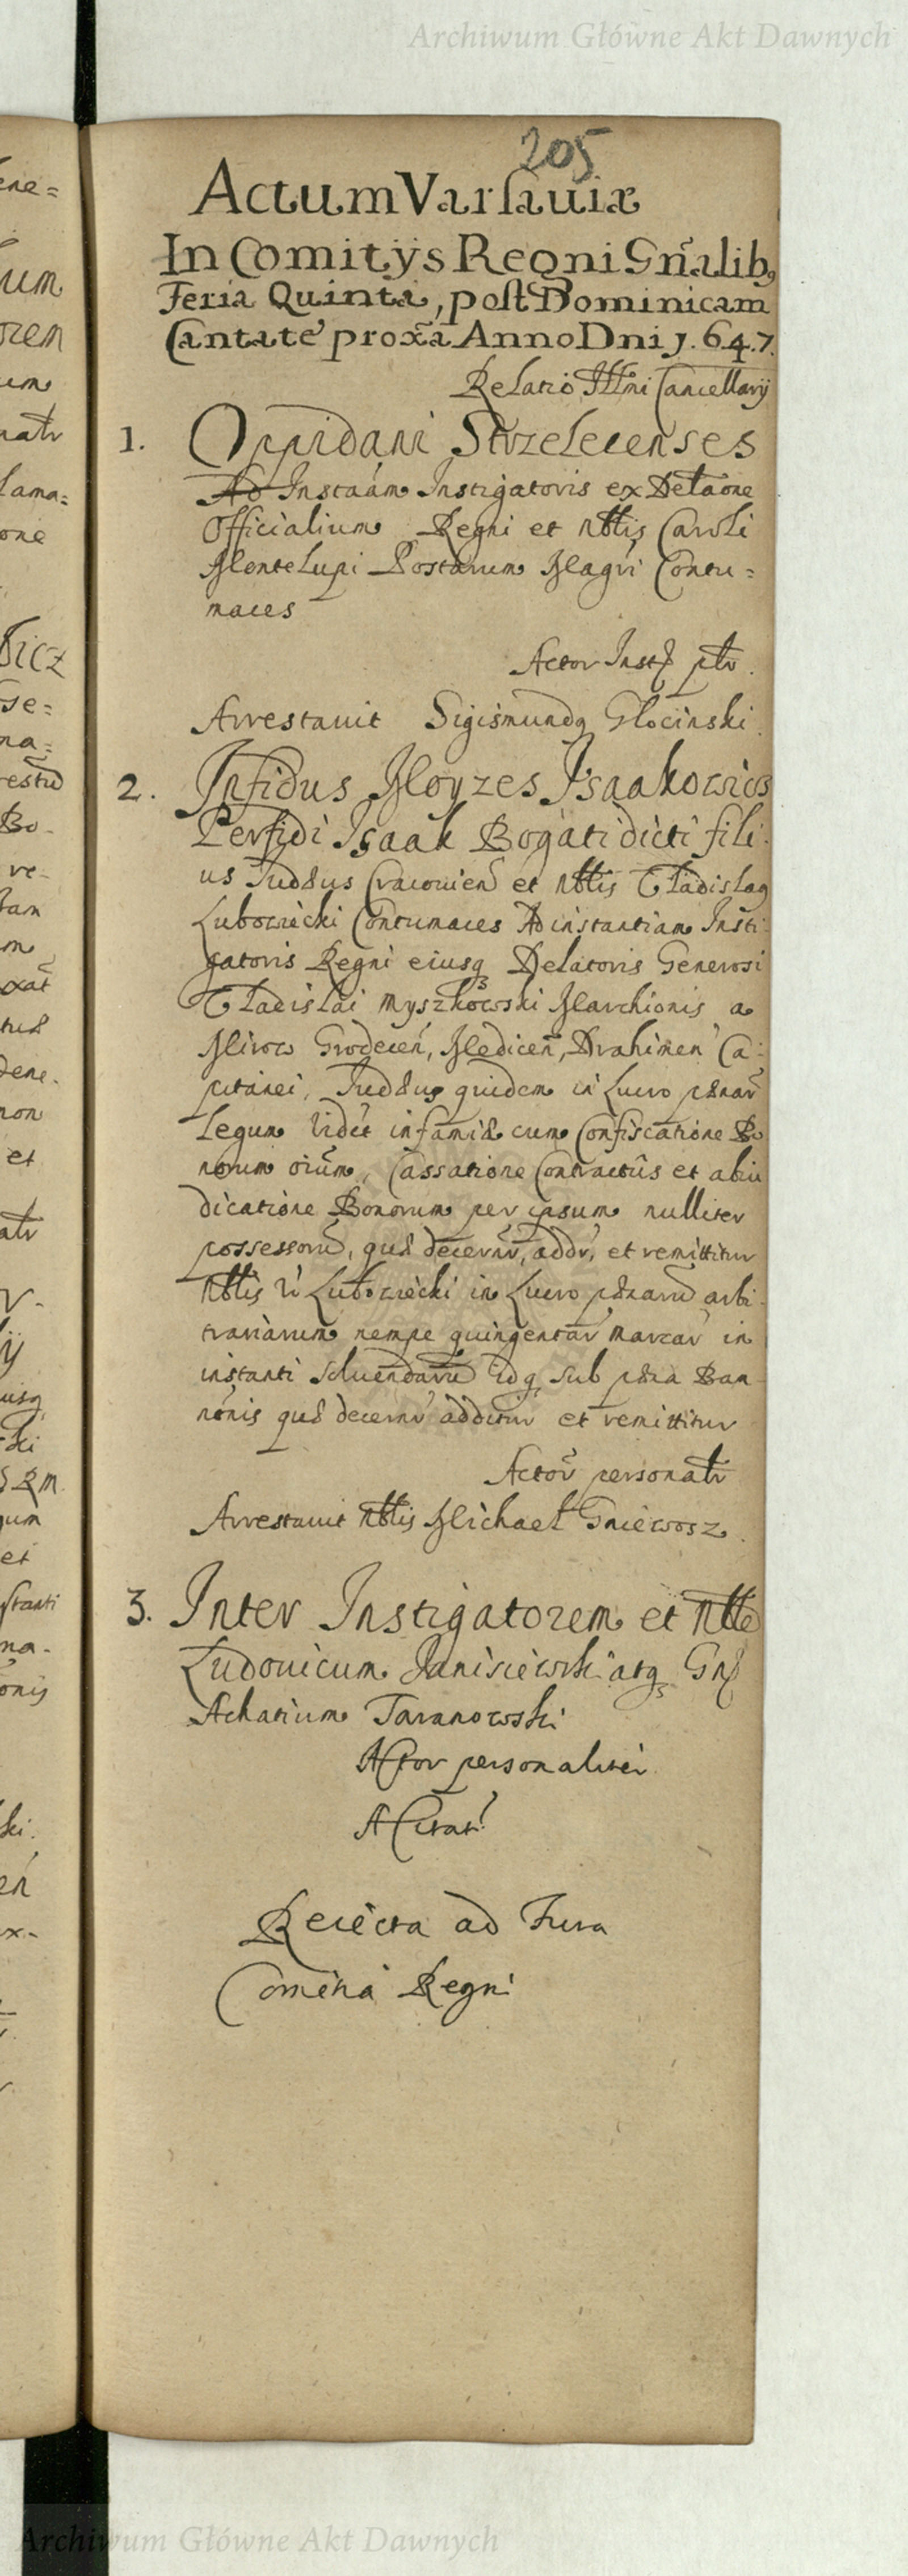 Archiwum Główne Akt Dawnych
205
Actum Varsauiæ
In Comitÿs Regni Gñalibq
Feria Quinta, post Dominicam
Cantate proxã Anno Dni 1.6.4.7.
Relatio Illmi Cancellarÿ
1. Oppidani Strzelecenses
Ad Instãam Instigatoris ex Delaone
Officialium Regni et Nblis Caroli
Montelupi Postarum Magri Contu=
maces
Actor Inst ptr.
Arrestauit Sigismundq Glocinski
2. Infidus Moyzes Isaakowicz
Perfidi Isaak Bogati dicti fili
us Iudæus Cracouien et Nblis Vladislaq
Lubowiecki Contumaces Ad instantiam Insti
gatoris Regni eiusq Delatoris Generosi
Vladislai Myszkowski Marchionis a
Mirow Grodecen, Medicen, Drahimen Ca=
pitanei, Iudæus quidem in Lucro pænar
Legum videt infamiæ cum Confiscatione Bo
norum oium, Cassatione Contractûs et abiu
dicatione Bonorum per ipsum nulliter
possessorũ, quæ decernr, addr, et remittitur
Nblis v Lubowiecki in Lucro pænarũ arbi
trariarum nempe quingentar marcar in
instanti soluendarũ idq sub pæna Ban
nonis quæ decernr additur et remittitur
Actor personalr
Arrestauit Nblis Michael Gniewosz
3. Inter Instigatorem et Nble
Ludouicum Janisiewski atq Gn
Achatium Taranowski
Actor personaliter
A Citat
Reiecta ad Iura
Comēnia Regni
Archiwum Główne Akt Dawnych